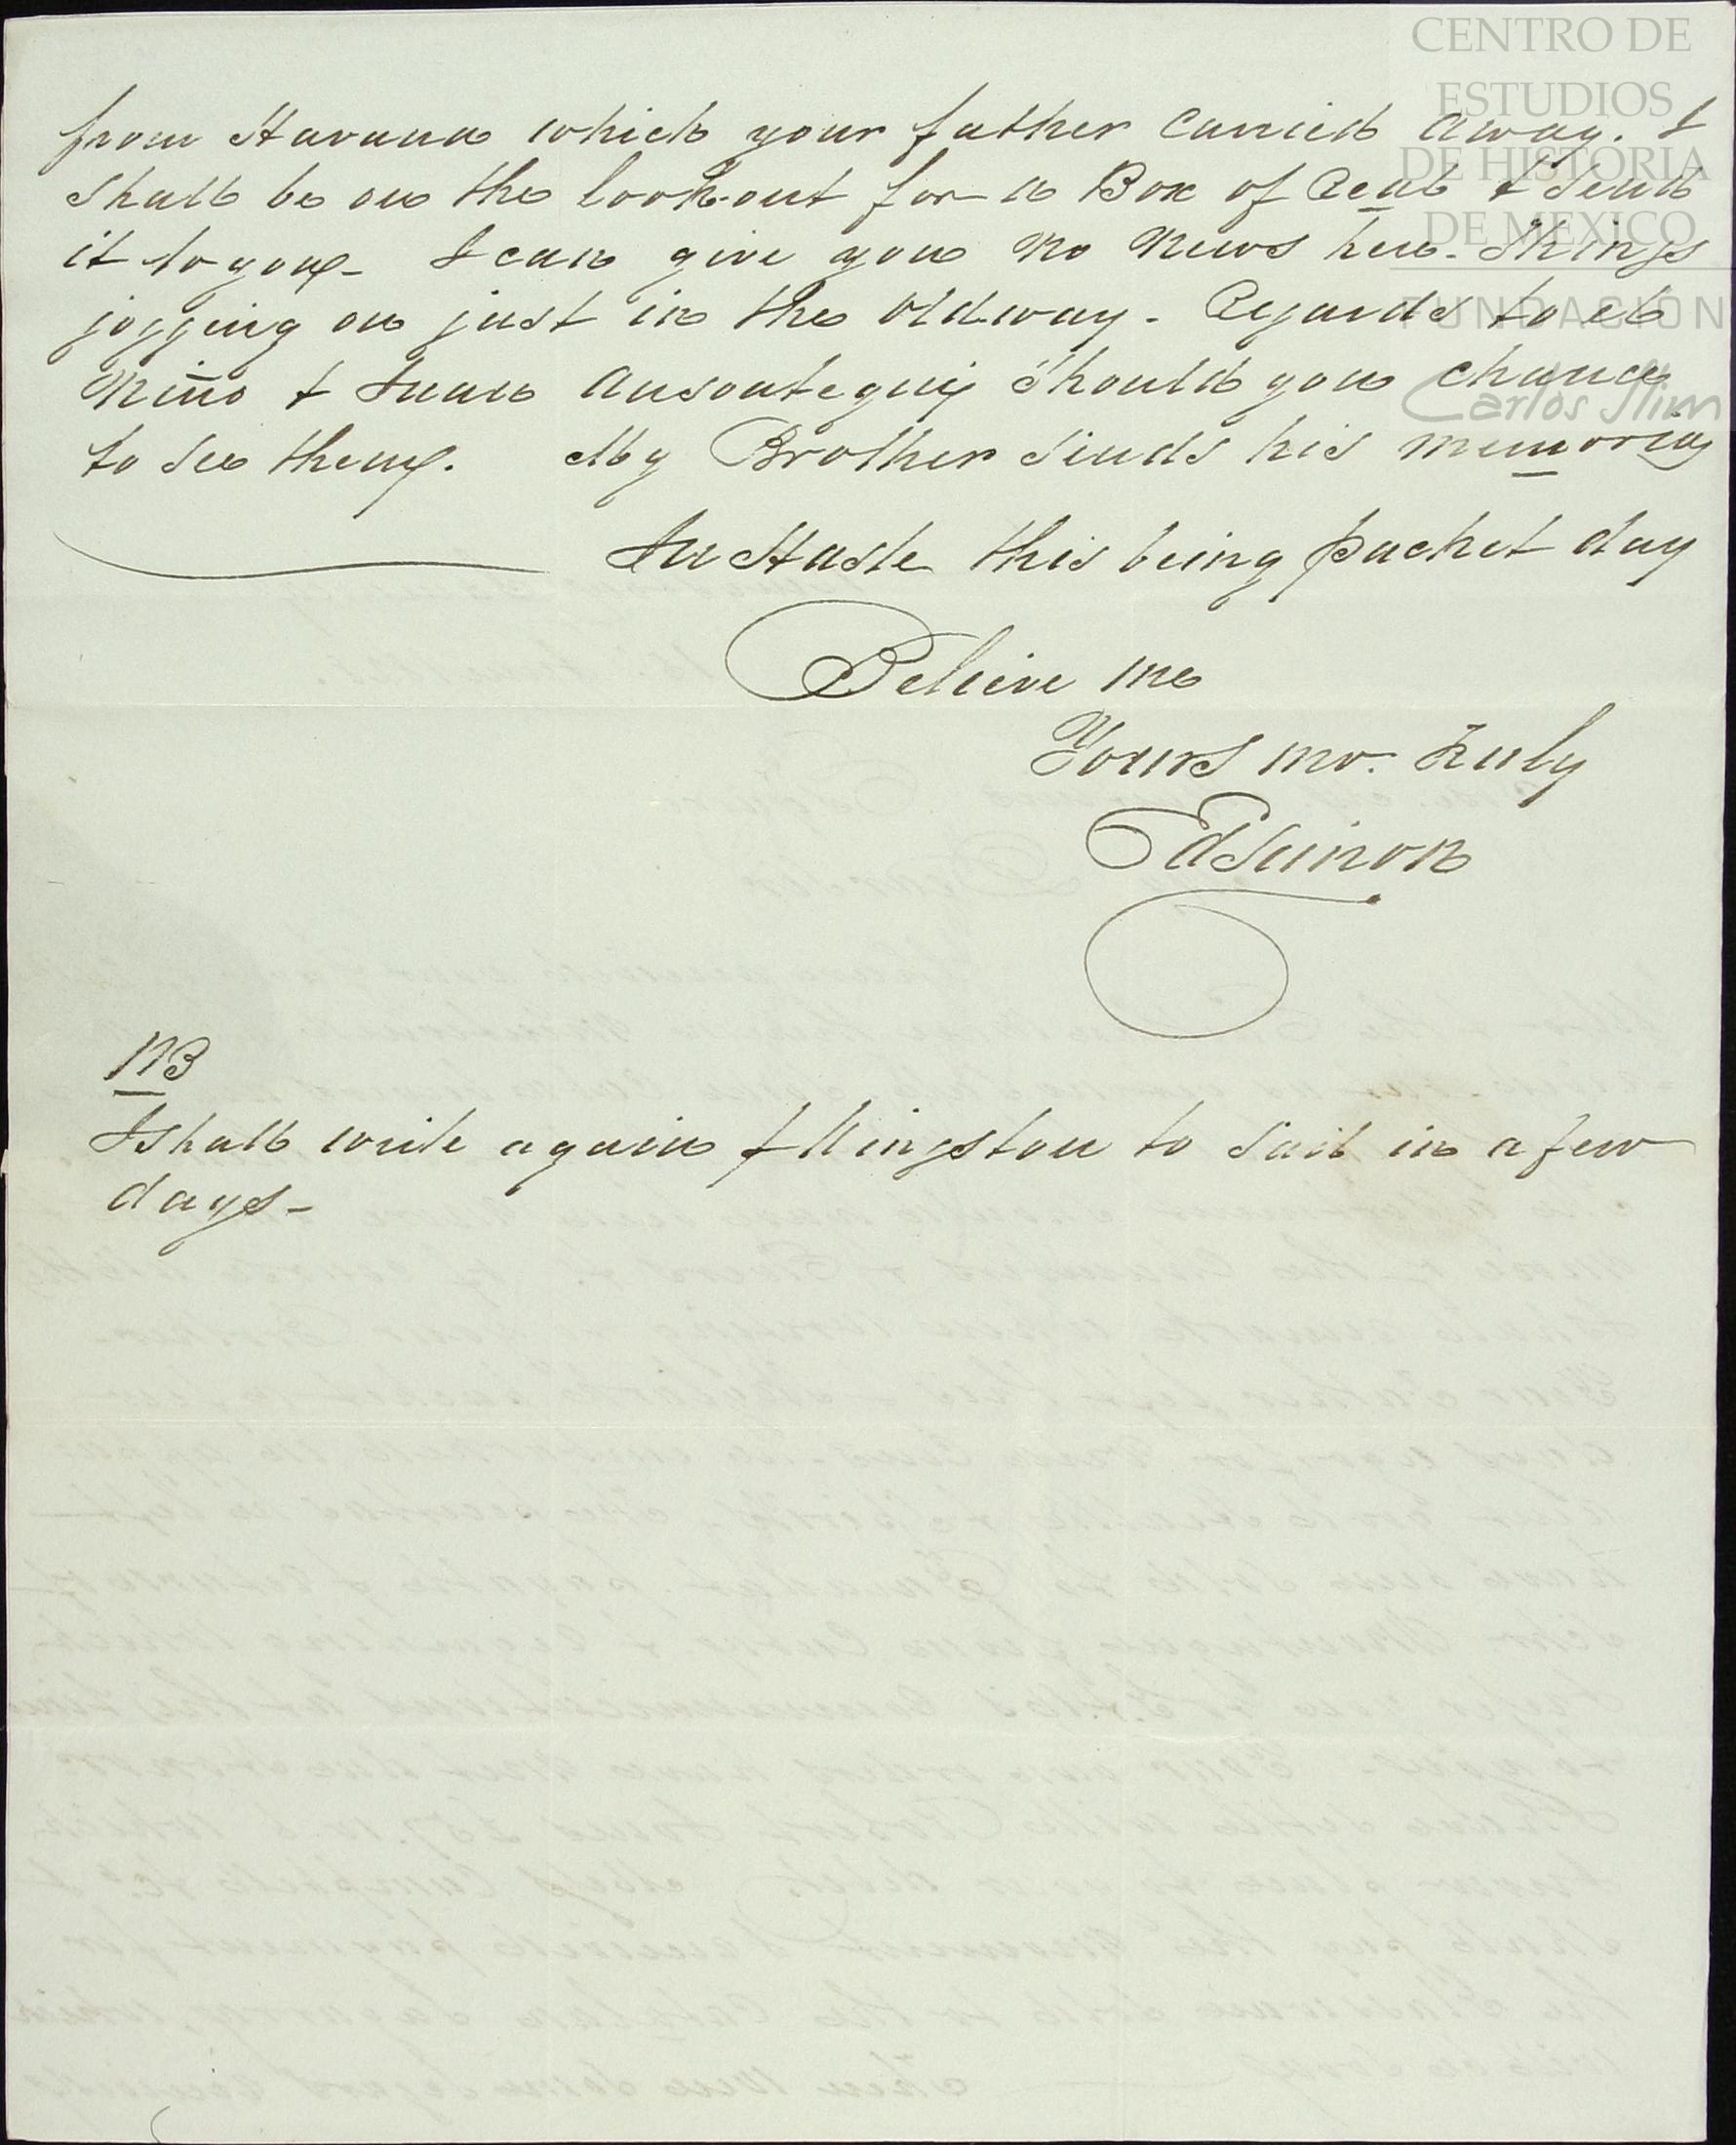 CENTRO DE
ESTUDIOS
DE HISTORIA
DE MEXICO
FUNDACIÓN
Carlos Slim
from Havana which your father carried away. I
shall be on the look-out for a Box of Real & send
it to you - I can give you no news here. Things
jogging on just in the old way - Regards to el
Niño & Juan Ansoategui should you chance
to see them. My Brother sends his memory
In Haste this being packet day
Believe me
Yours mo. truly
NB
I shall write again f Kingston to sail in a few
days -